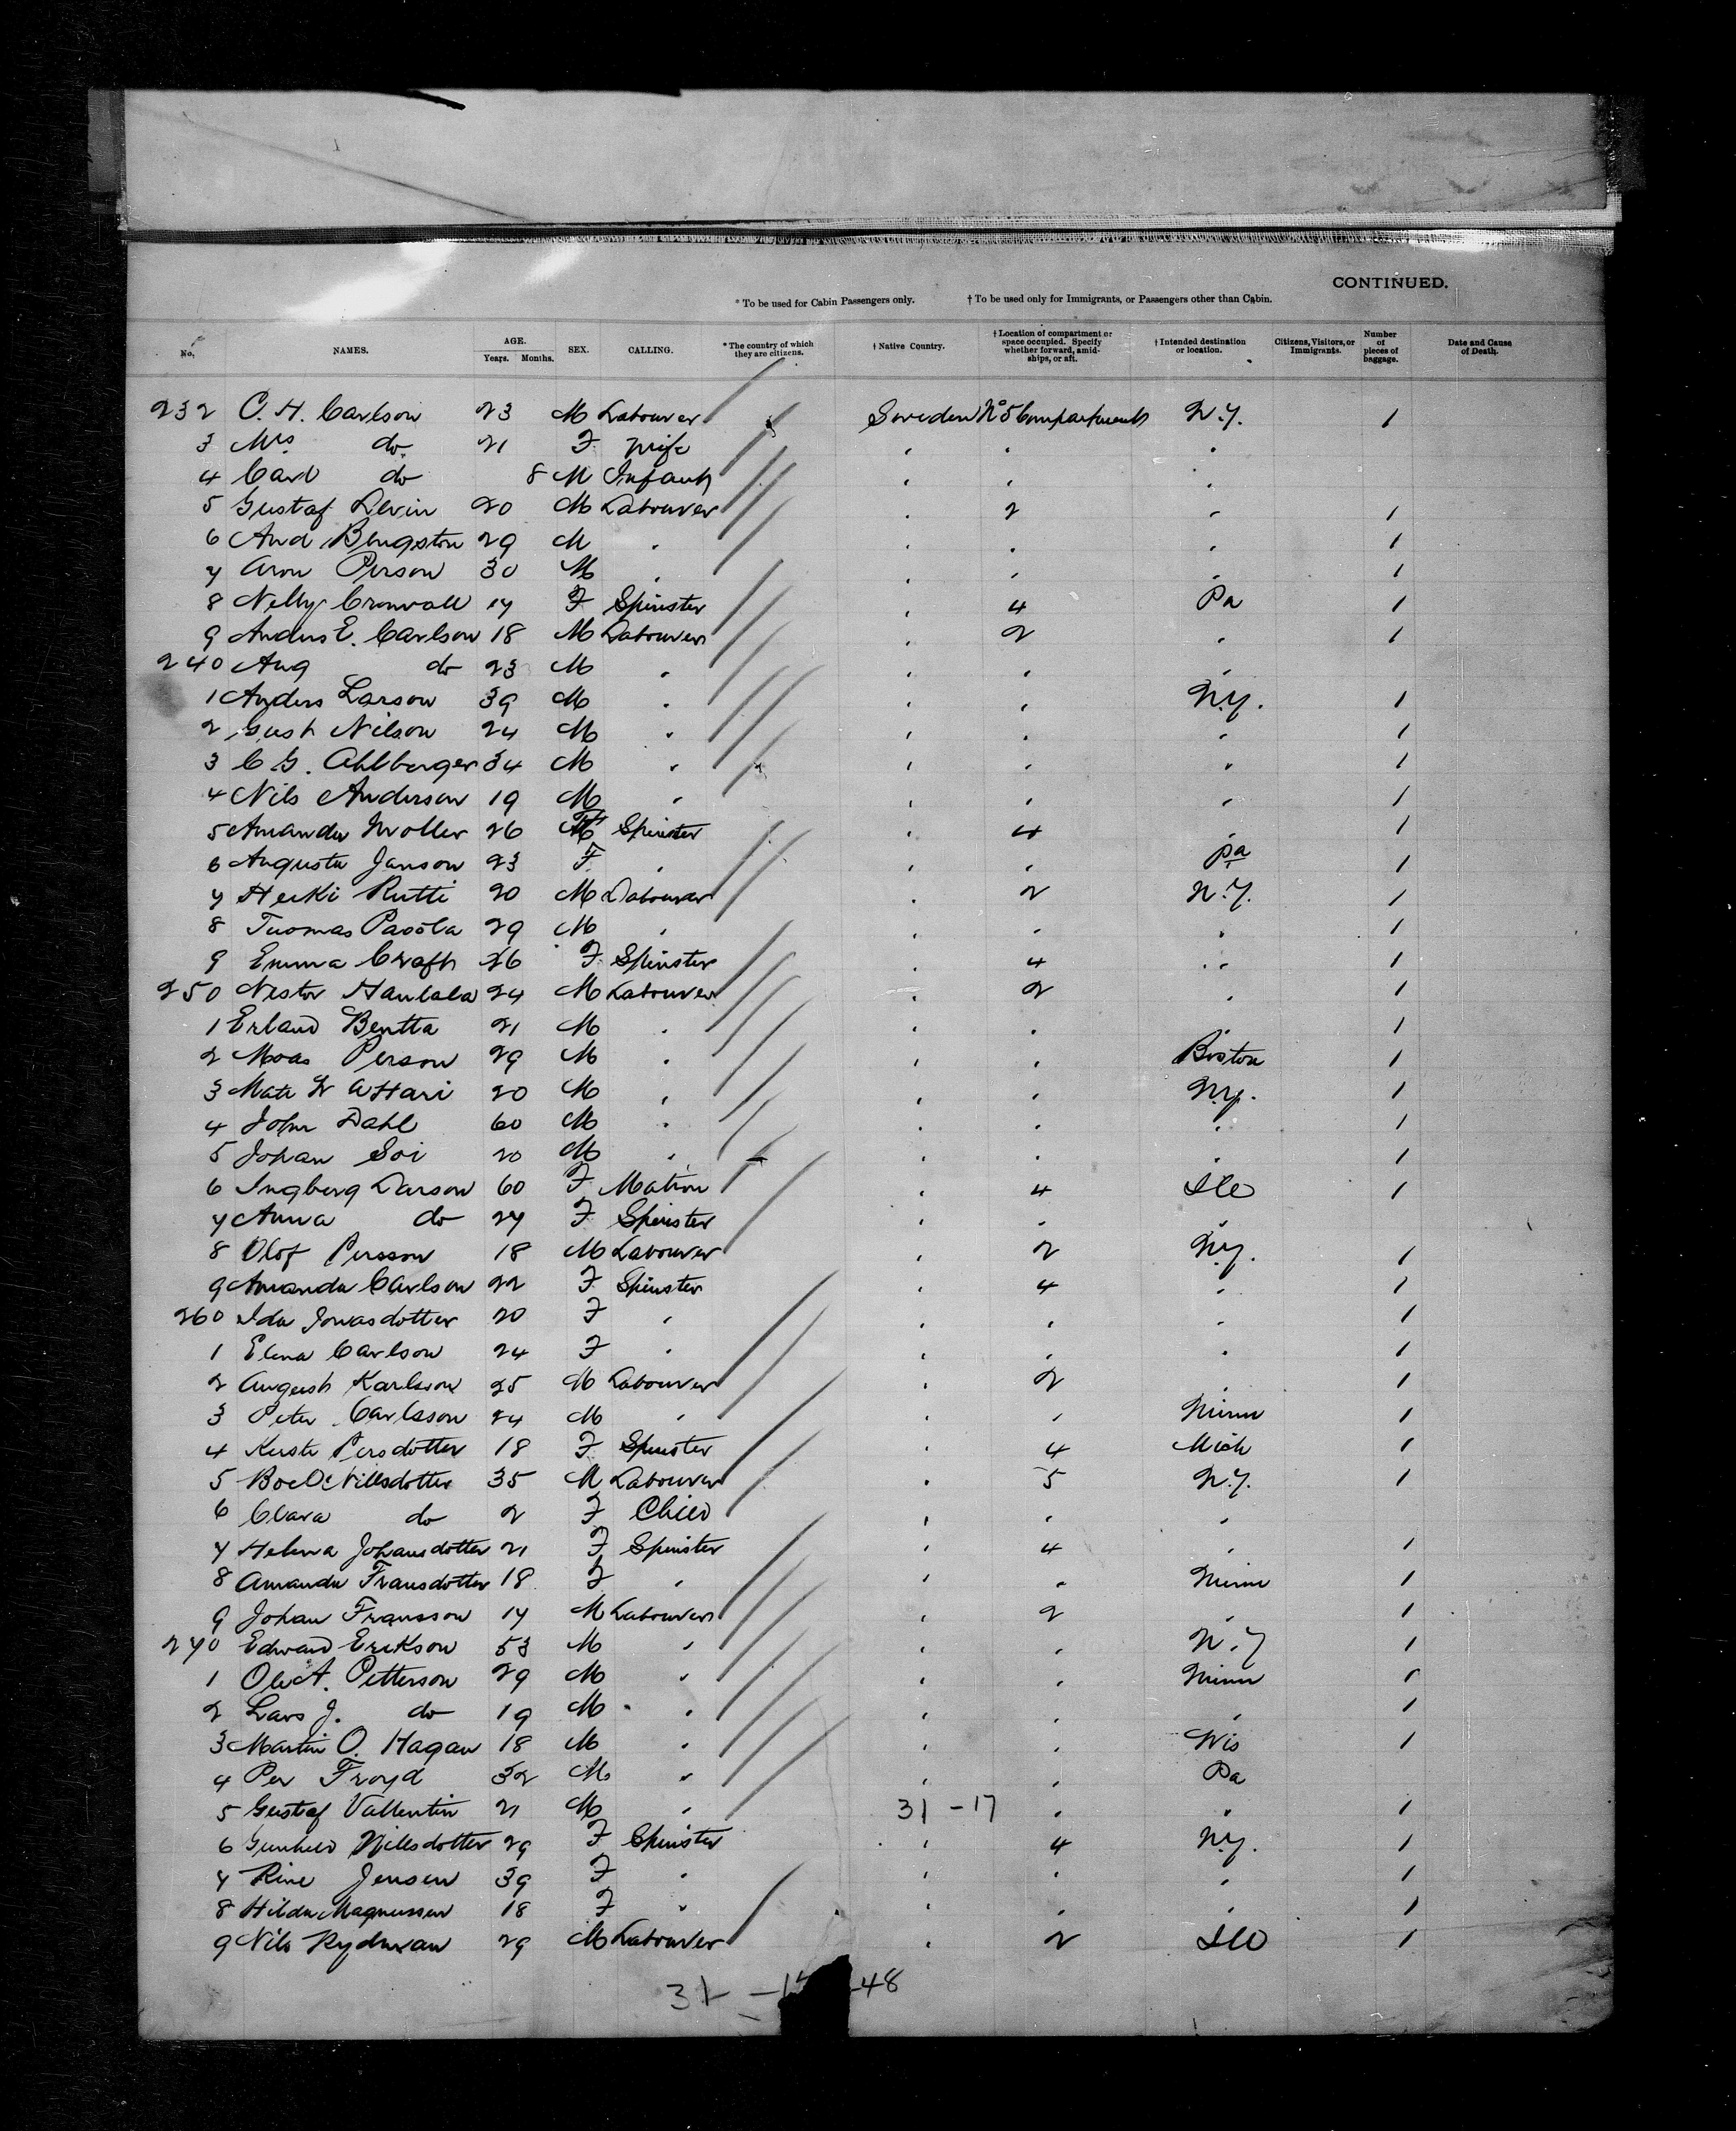 CONTINUED.
* To be used for Cabin Passengers only. † To be used only for Immigrants, or Passengers other than Cabin.
No. NAMES. AGE. Years. Months. SEX. CALLING. * The country of which they are citizens. † Native Country. † Location of compartment or space occupied. Specify whether forward, amidships, or aft. † Intended destination or location. Citizens, Visitors, or Immigrants. Number of pieces of baggage. Date and Cause of Death.
232 C. H. Carlson 23 M Labourer Sweden No 5 Compartment N.Y. 1
3 Mrs do 21 F Wife " " "
4 Carl do 8 M Infant " " "
5 Gustaf Levin 20 M Labourer " 2 " 1
6 And Bengston 29 M " " " " 1
7 Aron Person 30 M " " " " 1
8 Nelly Cronvall 17 F Spinster " 4 Pa 1
9 Anders E. Carlson 18 M Labourer " 2 " 1
240 Aug do 23 M " " " "
1 Anders Larson 39 M " " " N.Y. 1
2 Gust Nilson 24 M " " " " 1
3 C G. Ahlberger 34 M " " " " 1
4 Nils Anderson 19 M " " " " 1
5 Amanda Moller 26 F Spinster " 4 " 1
6 Augusta Janson 23 F " " " Pa 1
7 Heiki Rutti 20 M Labourer " 2 N.Y. 1
8 Tuomas Pasola 29 M " " " " 1
9 Emma Craft 26 F Spinster " 4 " 1
250 Nestor Haulala 24 M Labourer " 2 " 1
1 Erland Bentta 21 M " " " " 1
2 Moas Person 29 M " " " Boston 1
3 Mate 20 M " " " N.Y. 1
4 John Dahl 60 M " " " " 1
5 Johan Soi 20 M " " " " 1
6 Ingberg Larson 60 F Matron " 4 Ill 1
7 Anna do 27 F Spinster " " "
8 Olof Persson 18 M Labourer " 2 N.Y. 1
9 Amanda Carlson 22 F Spinster " 4 " 1
260 Ida Jonasdotter 20 F " " " " 1
1 Elena Carlson 24 F " " " " 1
2 August Karlsson 25 M Labourer " 2 " 1
3 Peter Carlsson 24 M " " " Minn 1
4 Kersti Persdotter 18 F Spinster " 4 Mich 1
5 Boel Nillsdotter 35 M Labourer " 5 N.Y. 1
6 Clara do 2 F Child " " "
7 Helena Johansdotter 21 F Spinster " 4 " 1
8 Amanda Fransdotter 18 F " " " Minn 1
9 Johan Fransson 17 M Labourer " 2 " 1
270 Edward Erikson 53 M " " " N.Y 1
1 Ole A. Petterson 29 M " " " Minn 1
2 Lars J. do 19 M " " " " 1
3 Martin O. Hagan 18 M " " " Wis 1
4 Per Froyd 32 M " " " Pa
5 Gustaf Vallentin 21 M " 31 - 17 " " 1
6 Gunhild Nillsdotter 29 F Spinster " 4 N.Y. 1
7 Rine Jensen 39 F " " " " 1
8 Hilda Magnussen 18 F " " " " 1
9 Nils Rydman 29 M Labourer " 2 Ill 1
31 - 17 - 48